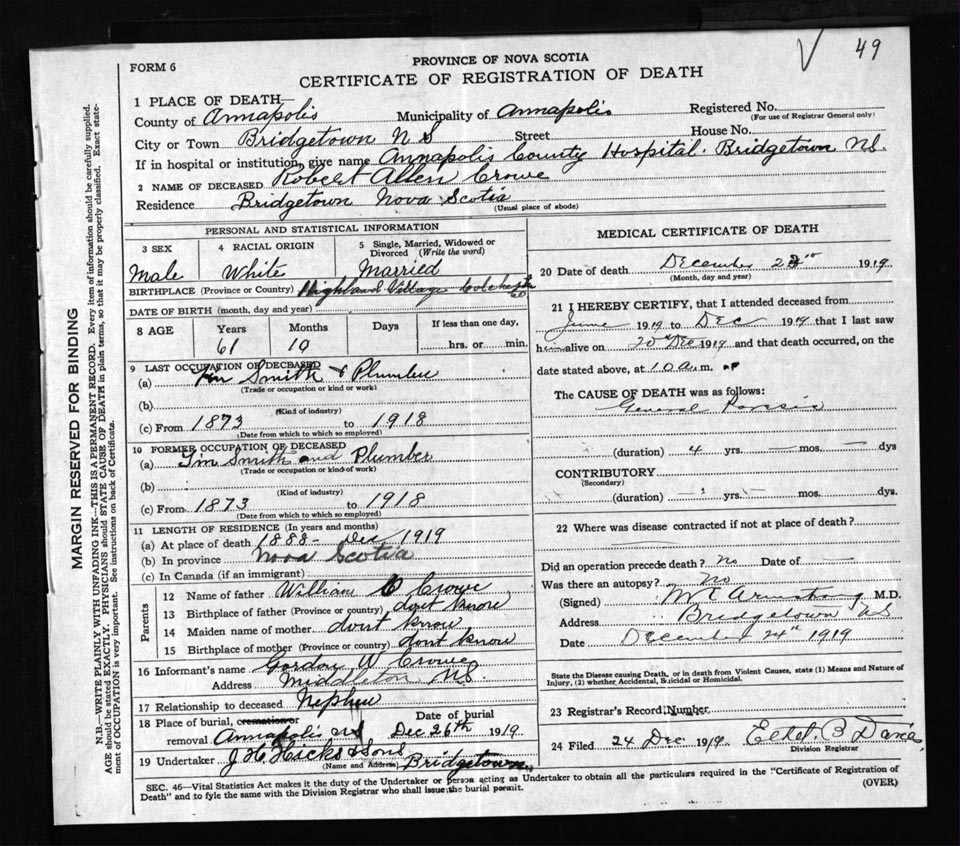 49
PROVINCE OF NOVA SCOTIA
FORM 6
CERTIFICATE OF REGISTRATION OF DEATH
MARGIN RESERVED FOR BINDING
N.B.—WRITE PLAINLY WITH UNFADING INK—THIS IS A PERMANENT RECORD. Every item of information should be carefully supplied.
AGE should be stated EXACTLY. PHYSICIANS should STATE CAUSE OF DEATH in plain terms, so that it may be properly classified. Exact state-
ment of OCCUPATION is very important. See instructions on back of Certificate.
1 PLACE OF DEATH—
County of Annapolis Municipality of Annapolis Registered No.
(For use of Registrar General only)
City or Town Bridgetown N S Street House No.
If in hospital or institution, give name Annapolis County Hospital. Bridgetown NS.
2 NAME OF DECEASED Robert Allen Crowe
Residence Bridgetown Nova Scotia
(Usual place of abode)
PERSONAL AND STATISTICAL INFORMATION
3 SEX 4 RACIAL ORIGIN 5 Single, Married, Widowed or Divorced (Write the word)
Male White Married
BIRTHPLACE (Province or Country) Highland Village Colchester Co
DATE OF BIRTH (month, day and year)
8 AGE Years Months Days If less than one day,
61 10 hrs. or min.
9 LAST OCCUPATION OF DECEASED
(a) Tin Smith & Plumber
(Trade or occupation or kind or work)
(b)
(Kind of industry)
(c) From 1873 to 1918
(Date from which to which so employed)
10 FORMER OCCUPATION OF DECEASED
(a) Tin Smith and Plumber
(Trade or occupation or kind of work)
(b)
(Kind of industry)
(c) From 1873 to 1918
(Date from which to which so employed)
11 LENGTH OF RESIDENCE (In years and months)
(a) At place of death 1888 - Dec 1919
(b) In province Nova Scotia
(c) In Canada (if an immigrant)
Parents
12 Name of father William C Crowe
13 Birthplace of father (Province or country) dont know
14 Maiden name of mother dont know
15 Birthplace of mother (Province or country) dont know
16 Informant's name Gordon W. Crowe
Address Middleton NS.
17 Relationship to deceased Nephew
18 Place of burial, cremation or Date of burial
removal Annapolis NS Dec 26th 1919.
19 Undertaker J H Hicks & Sons Bridgetown
(Name and Address)
MEDICAL CERTIFICATE OF DEATH
20 Date of death December 1919
(Month, day and year)
21 I HEREBY CERTIFY, that I attended deceased from
June 1919 to Dec 1919 that I last saw
him alive on 20 Dec 1919 and that death occurred, on the
date stated above, at 10 a.m.
The CAUSE OF DEATH was as follows:
General Paresis
(duration) 4 yrs. — mos. — dys
CONTRIBUTORY
(Secondary)
(duration) — yrs. — mos. dys.
22 Where was disease contracted if not at place of death?
Did an operation precede death? No Date of
Was there an autopsy? No
(Signed) Armstrong M.D.
Address Bridgetown NS
Date December 24th 1919
State the Disease causing Death, or in death from Violent Causes, state (1) Means and Nature of
Injury, (2) whether Accidental, Suicidal or Homicidal.
23 Registrar's Record Number
24 Filed 24 Dec 1919. Ethel. B
Division Registrar
SEC. 46—Vital Statistics Act makes it the duty of the Undertaker or person acting as Undertaker to obtain all the particulars required in the "Certificate of Registration of
Death" and to fyle the same with the Division Registrar who shall issue the burial permit. (OVER)